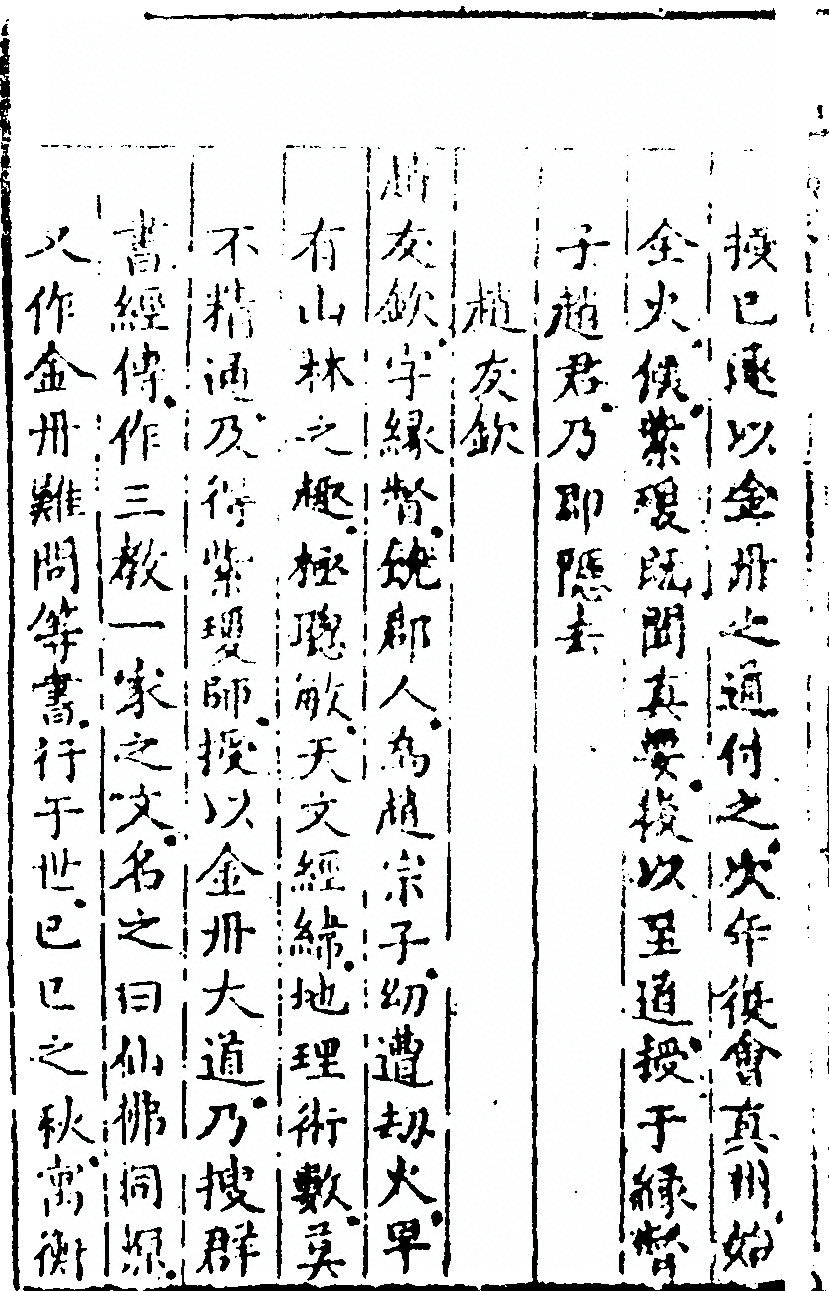 授已遂以金丹之道付之次年復會真州始
全火候紫瓊既聞真要後以至道授于緣督
子趙君乃即隱去
趙友欽
趙友欽字緣督饒郡人為趙宗子幼遭劫火早
有山林之趣極聰敏天文經緯地理術數莫
不精通及得紫瓊師授以金丹大道乃搜群
書經傳作三教一家之文名之曰仙佛同源
又作金丹難問等書行于世已巳之秋寓衡